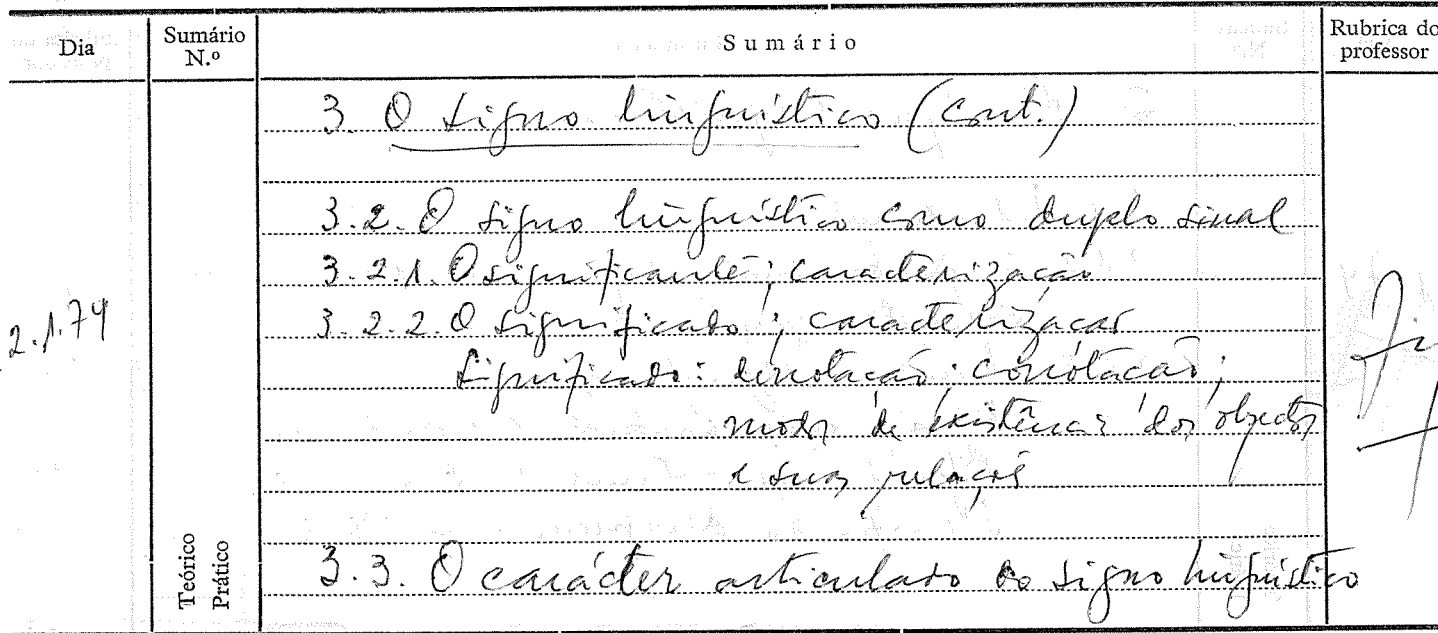 Dia
Sumário N.º
Sumário
Rubrica do professor
3. O signo linguístico (cont.)
3.2. O signo linguístico como duplo sinal
3.2.1. O significante; caracterização
2.1.74
3.2.2. O significado; caracterização
Significado: denotação; conotação;
modos de existência dos objectos
e suas relações
3.3. O carácter articulado do signo linguístico
Teórico
Prático